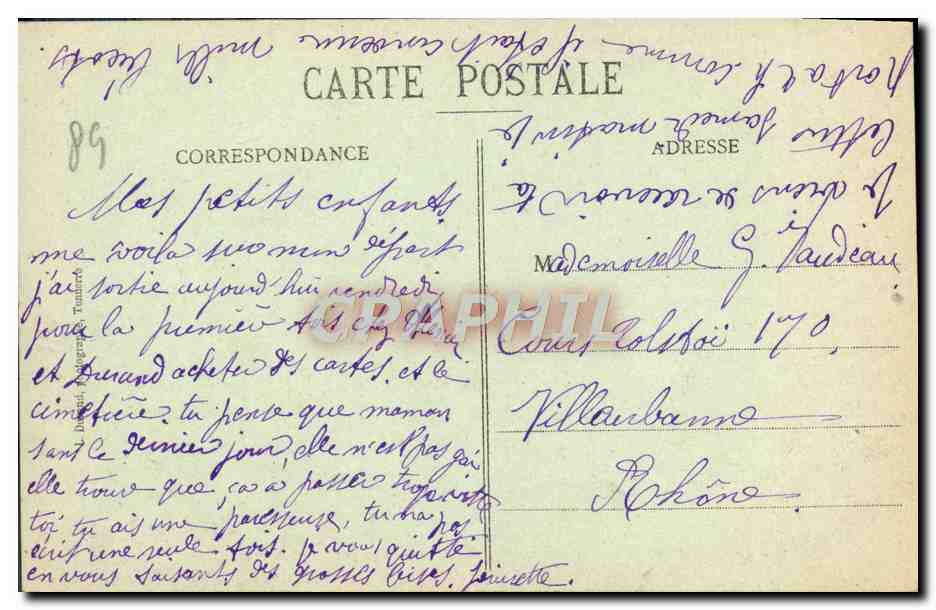 CARTE POSTALE
89
CORRESPONDANCE
ADRESSE
Mes petits enfants
me voila mon départ
j'ai sortie aujourd'hui vendredi
pour la première fois chez
et Durand acheter des cartes. et le
cimetière. tu pense que maman
sant ce dernier jour, elle n'est pas gai
elle trouve que ça a passer trop vite
toi tu ais une paresseuse, tu m'a pas
écrit une seule fois. je vous quitte
en vous faisants des grosses bises.
Mademoiselle G. Naudeau
Cours Tolstoï 170
Villeurbanne
Rhône
je viens de recevoir ta
lettre samedi matin je
comme
mille
Durand, Photographe, Tonnerre
CPAPHIL